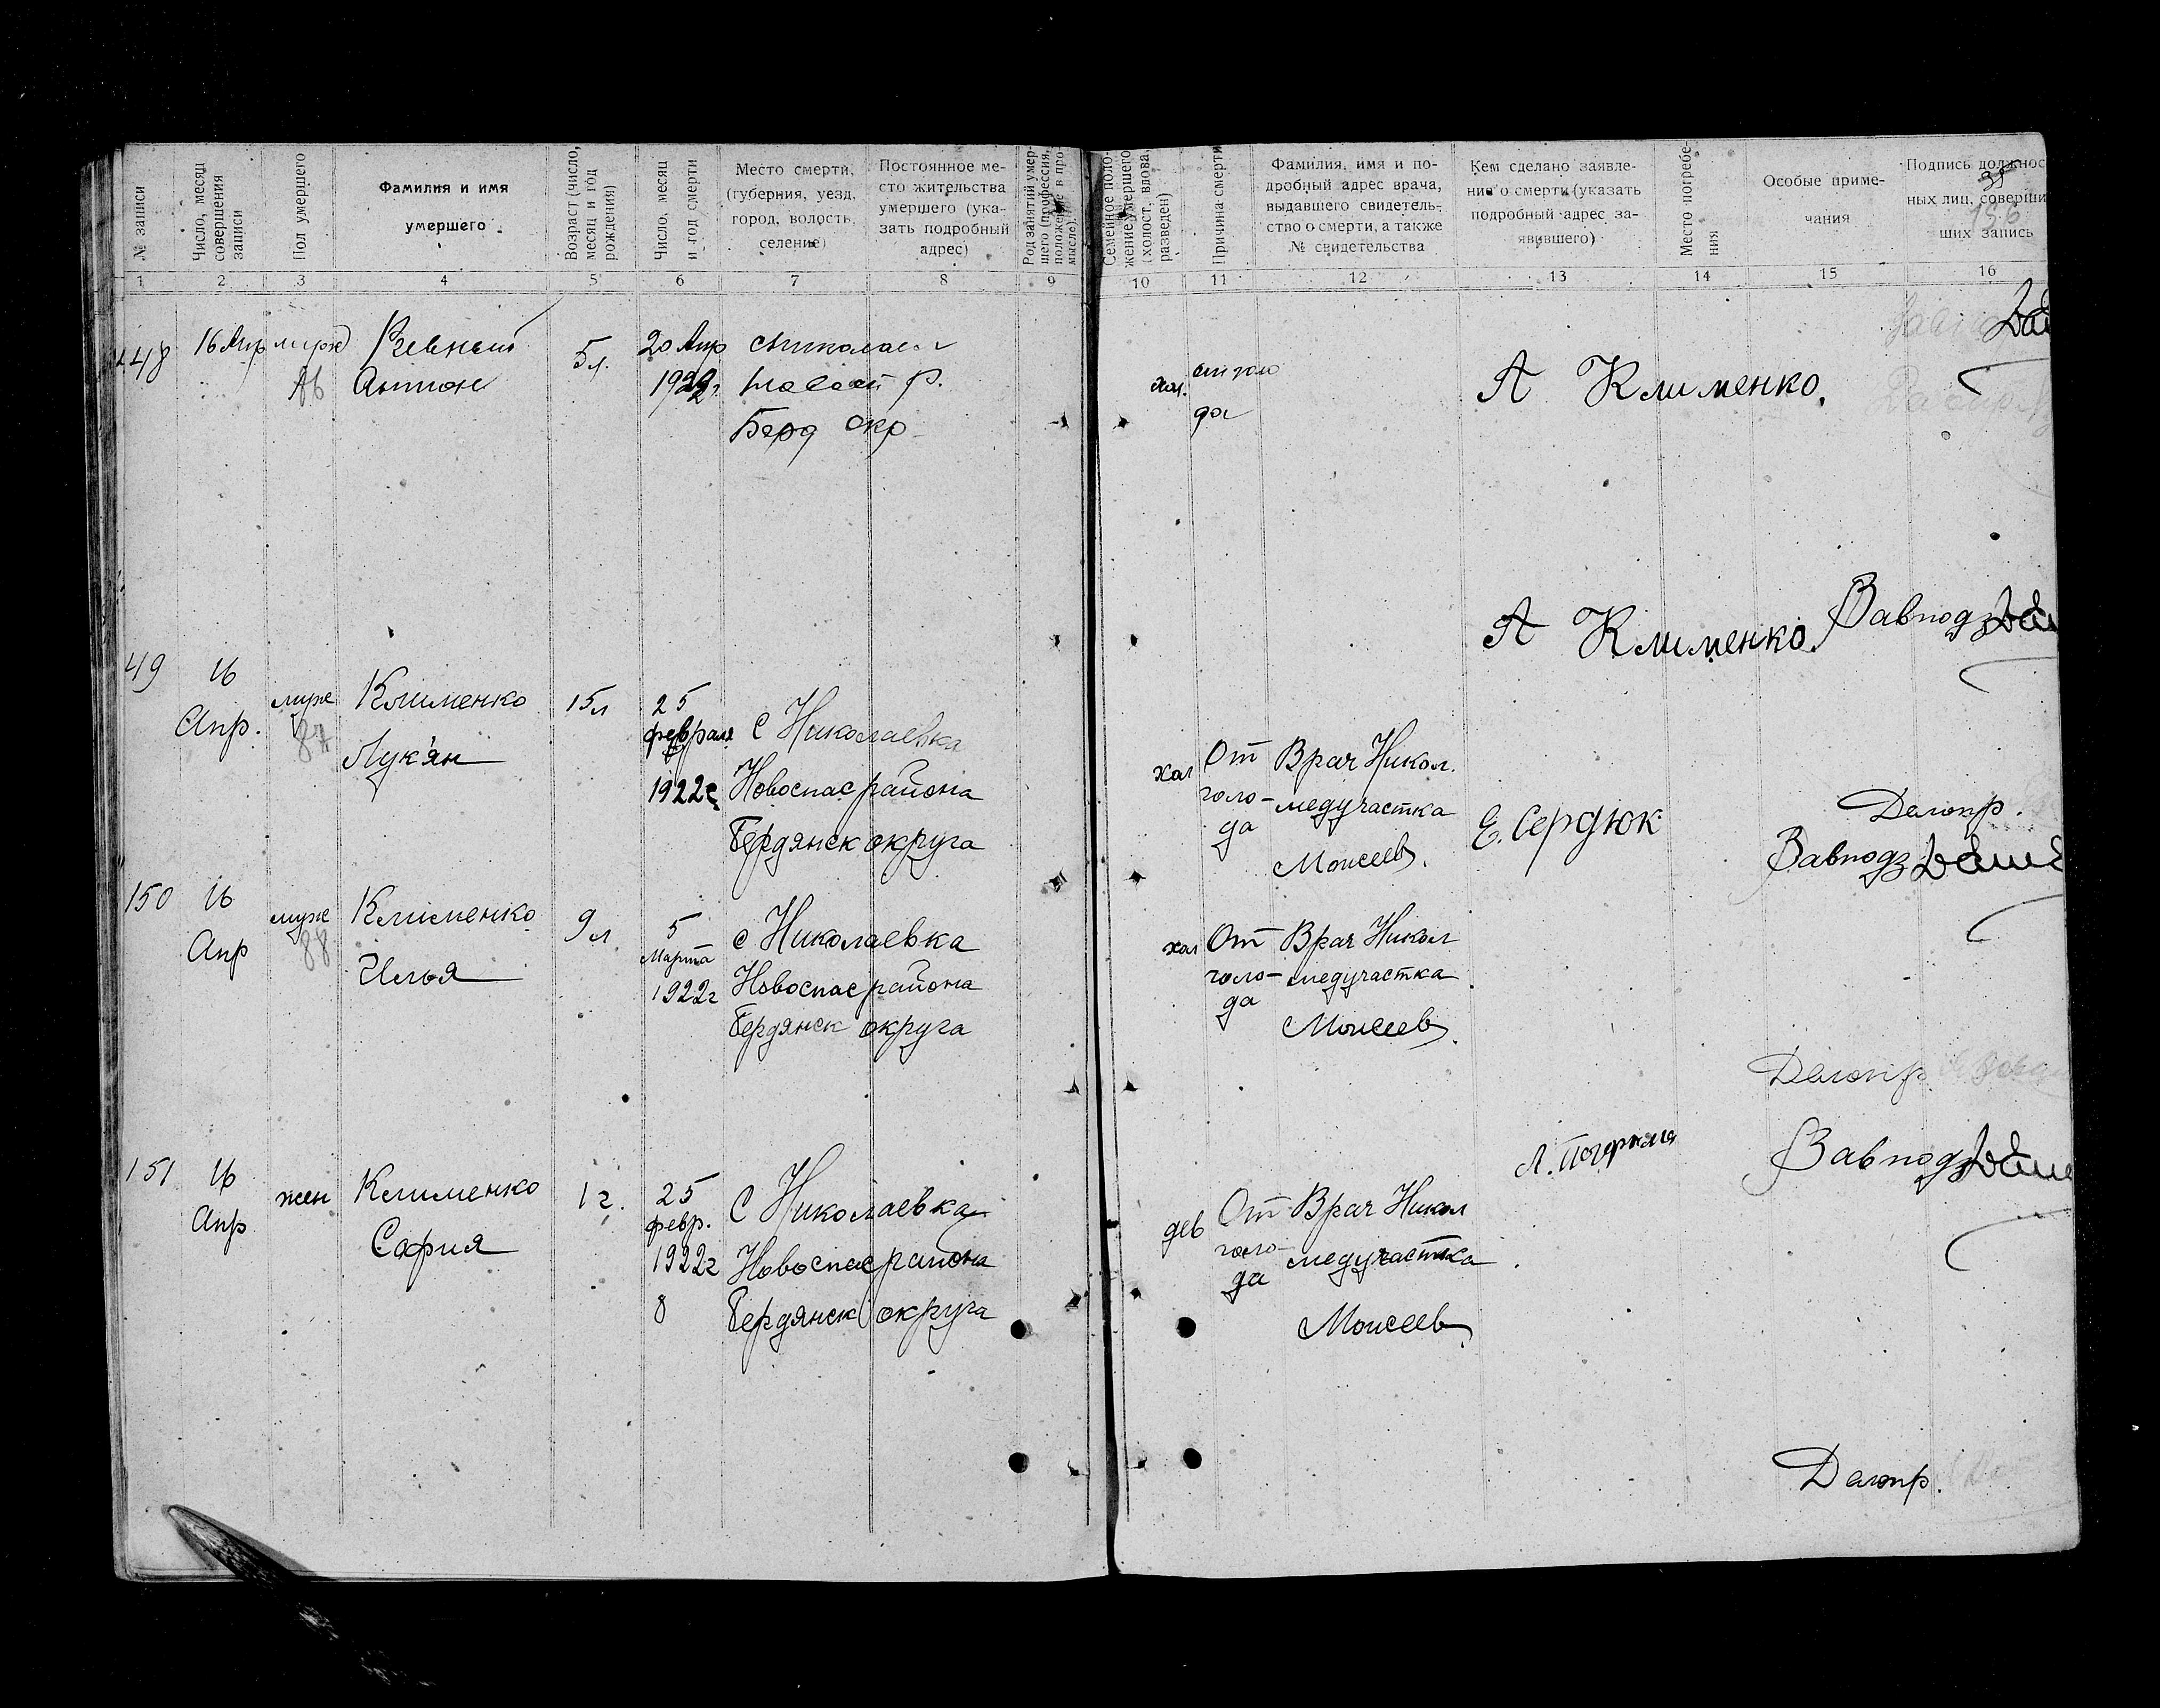 № записи
Число, месяц
совершения
записи
Пол умершего
Фамилия и имя
умершего
Возраст (число,
месяц и год
рождения)
Число, месяц
и год смерти
Место смерти,
(губерния, уезд,
город, волость,
селение)
Постоянное ме-
сто жительства
умершего (ука-
зать подробный
адрес)
Род занятий умер-
шего (профессия,
положение в про-
мысле).
Семейное поло-
жение умершего
(холост, вдова,
разведен)
Причина смерти
Фамилия, имя и по-
дробный адрес врача,
выдавшего свидетель-
ство о смерти, а также
№ свидетельства
Кем сделано заявле-
ние о смерти (указать
подробный адрес за-
явившего)
Место погребе-
ния
Особые приме-
чания
Подпись должнос
ных лиц, соверши
ших запись
35
156
1 2 3 4 5 6 7 8 9 10 11 12 13 14 15 16
148 16 Апр муж
86
Антон
5л.
20 Апр
1922г.
р.
Берд окр
хол.
да
А Клименко.
А Клименко.
Завподз
49 16
Апр.
муж
87
Клименко
Лук'ян
15л
25
февраля
1922г
с Николаевка
Новоспас района
Бердянск округа
хол
От
голо-
да
Врач Никол.
медучастка
Моисеев.
Е. Сердюк
Делопр.
Завподз
150 16
Апр
муж
88
Клименко
Илья
9л
5
Марта
1922г
с Николаевка
Новоспас района
Бердянск округа
хол
От
голо-
да
Врач Никол
медучастка
Моисеев.
Делопр.
Завподз
151 16
Апр
жен
Клименко
София
1 г.
25
февр.
1922г
8
С Николаевка
Новоспас района
Бердянск округа
дев
От
голо-
да
Врач Никол
медучастка
Моисеев
Делопр.